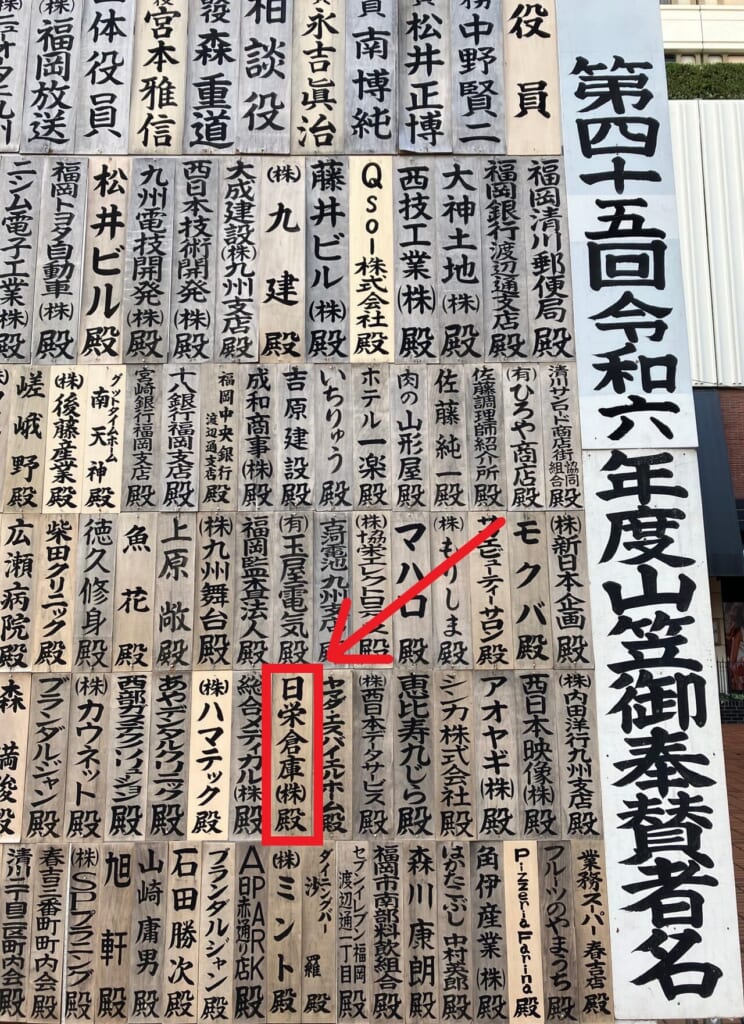 第四十五回令和六年度山笠御奉賛者名
役員
中野賢二
松井正博
南博純
永吉眞治
相談役
森重道
宮本雅信
体役員
福岡放送
福岡清川郵便局殿
福岡銀行渡辺通支店殿
大神土地(株)殿
西技工業(株)殿
Qsol株式会社殿
藤井ビル(株)殿
(株)九建殿
大成建設(株)九州支店殿
西日本技術開発(株)殿
九州電技開発(株)殿
松井ビル殿
福岡トヨタ自動車(株)殿
ニシム電子工業(株)殿
清川サンロード商店街協同組合殿
(有)ひろや商店殿
佐藤調理師紹介所殿
佐藤純一殿
肉の山形屋殿
ホテル一楽殿
いちりゅう殿
吉原建設殿
成和商事(株)殿
福岡中央銀行渡辺通支店殿
十八銀行福岡支店殿
宮崎銀行福岡支店殿
グッドタイムホーム南天神殿
(株)後藤産業殿
嵯峨野殿
(株)新日本企画殿
モクバ殿
ビューティーサロン殿
(株)もりしま殿
マハロ殿
(株)協栄エレクトロニクス殿
古河電池九州支店殿
(有)玉屋電気殿
福岡監査法人殿
(株)九州舞台殿
上原敞殿
魚花殿
徳久修身殿
柴田クリニック殿
広瀬病院殿
(株)内田洋行九州支店殿
西日本映像(株)殿
アオヤギ(株)殿
シンカ株式会社殿
恵比寿九じら殿
(株)西日本データサービス殿
ヤマダ・エスバイエルホーム殿
日栄倉庫(株)殿
総合メディカル(株)殿
(株)ハマテック殿
あやデンタルクリニック殿
西部ガスリビング殿
(株)カウネット殿
ブランダルジャン殿
森満俊殿
業務スーパー春吉店殿
フルーツのやまうち殿
Pizzeria Farina殿
角伊産業(株)殿
はかたこぶし中村美郎殿
森川康朗殿
福岡市南部料飲組合殿
セブンイレブン福岡渡辺通一丁目殿
ダイニングバー沙羅殿
(株)ミント殿
APARK日赤通り店殿
ブランダルジャン殿
石田勝次殿
山崎庸男殿
旭軒殿
(株)SPプラニング殿
春吉三番町町内会殿
清川一丁目三区町内会殿